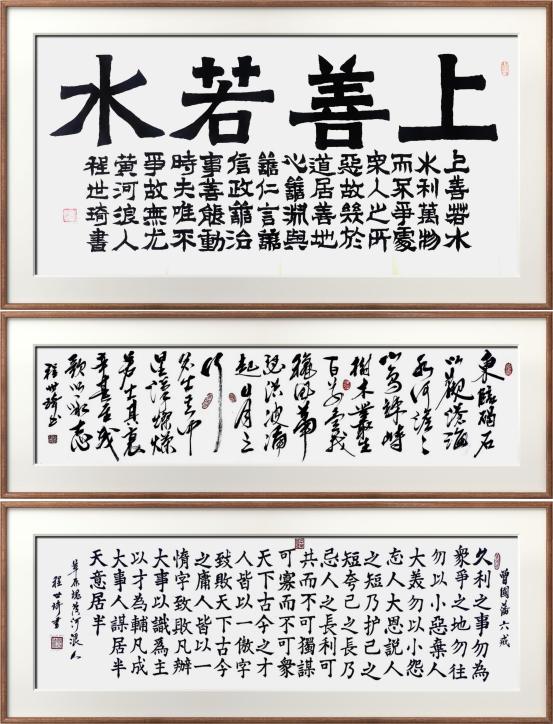 上善若水
上善若水
水利萬物
而不爭處
眾人之所
惡故幾於
道居善地
心譱淵與
譱仁言譱
信政譱治
事善能動
時夫唯不
爭故無尤
黄河浪人
程世琦書
東臨碣石
以觀滄海
水何澹々
山島竦峙
樹木叢生
百草豐茂
秋風蕭
瑟洪波涌
起日月之
行
若出其中
星漢燦爛
若出其裏
幸甚至哉
歌以詠志
程世琦書
曾國藩六戒
久利之事勿為
衆爭之地勿往
勿以小惡棄人
大美勿以小怨
忘人大恩說人
之短乃護己之
短夸己之長乃
忌人之長利可
共而不可獨謀
可寡而不可衆
天下古今之才
人皆以一傲字
致敗天下古今
之庸人皆以一
惰字致敗凡辦
大事以識為主
以才為輔凡成
大事人謀居半
天意居半
河浪人
程世琦書